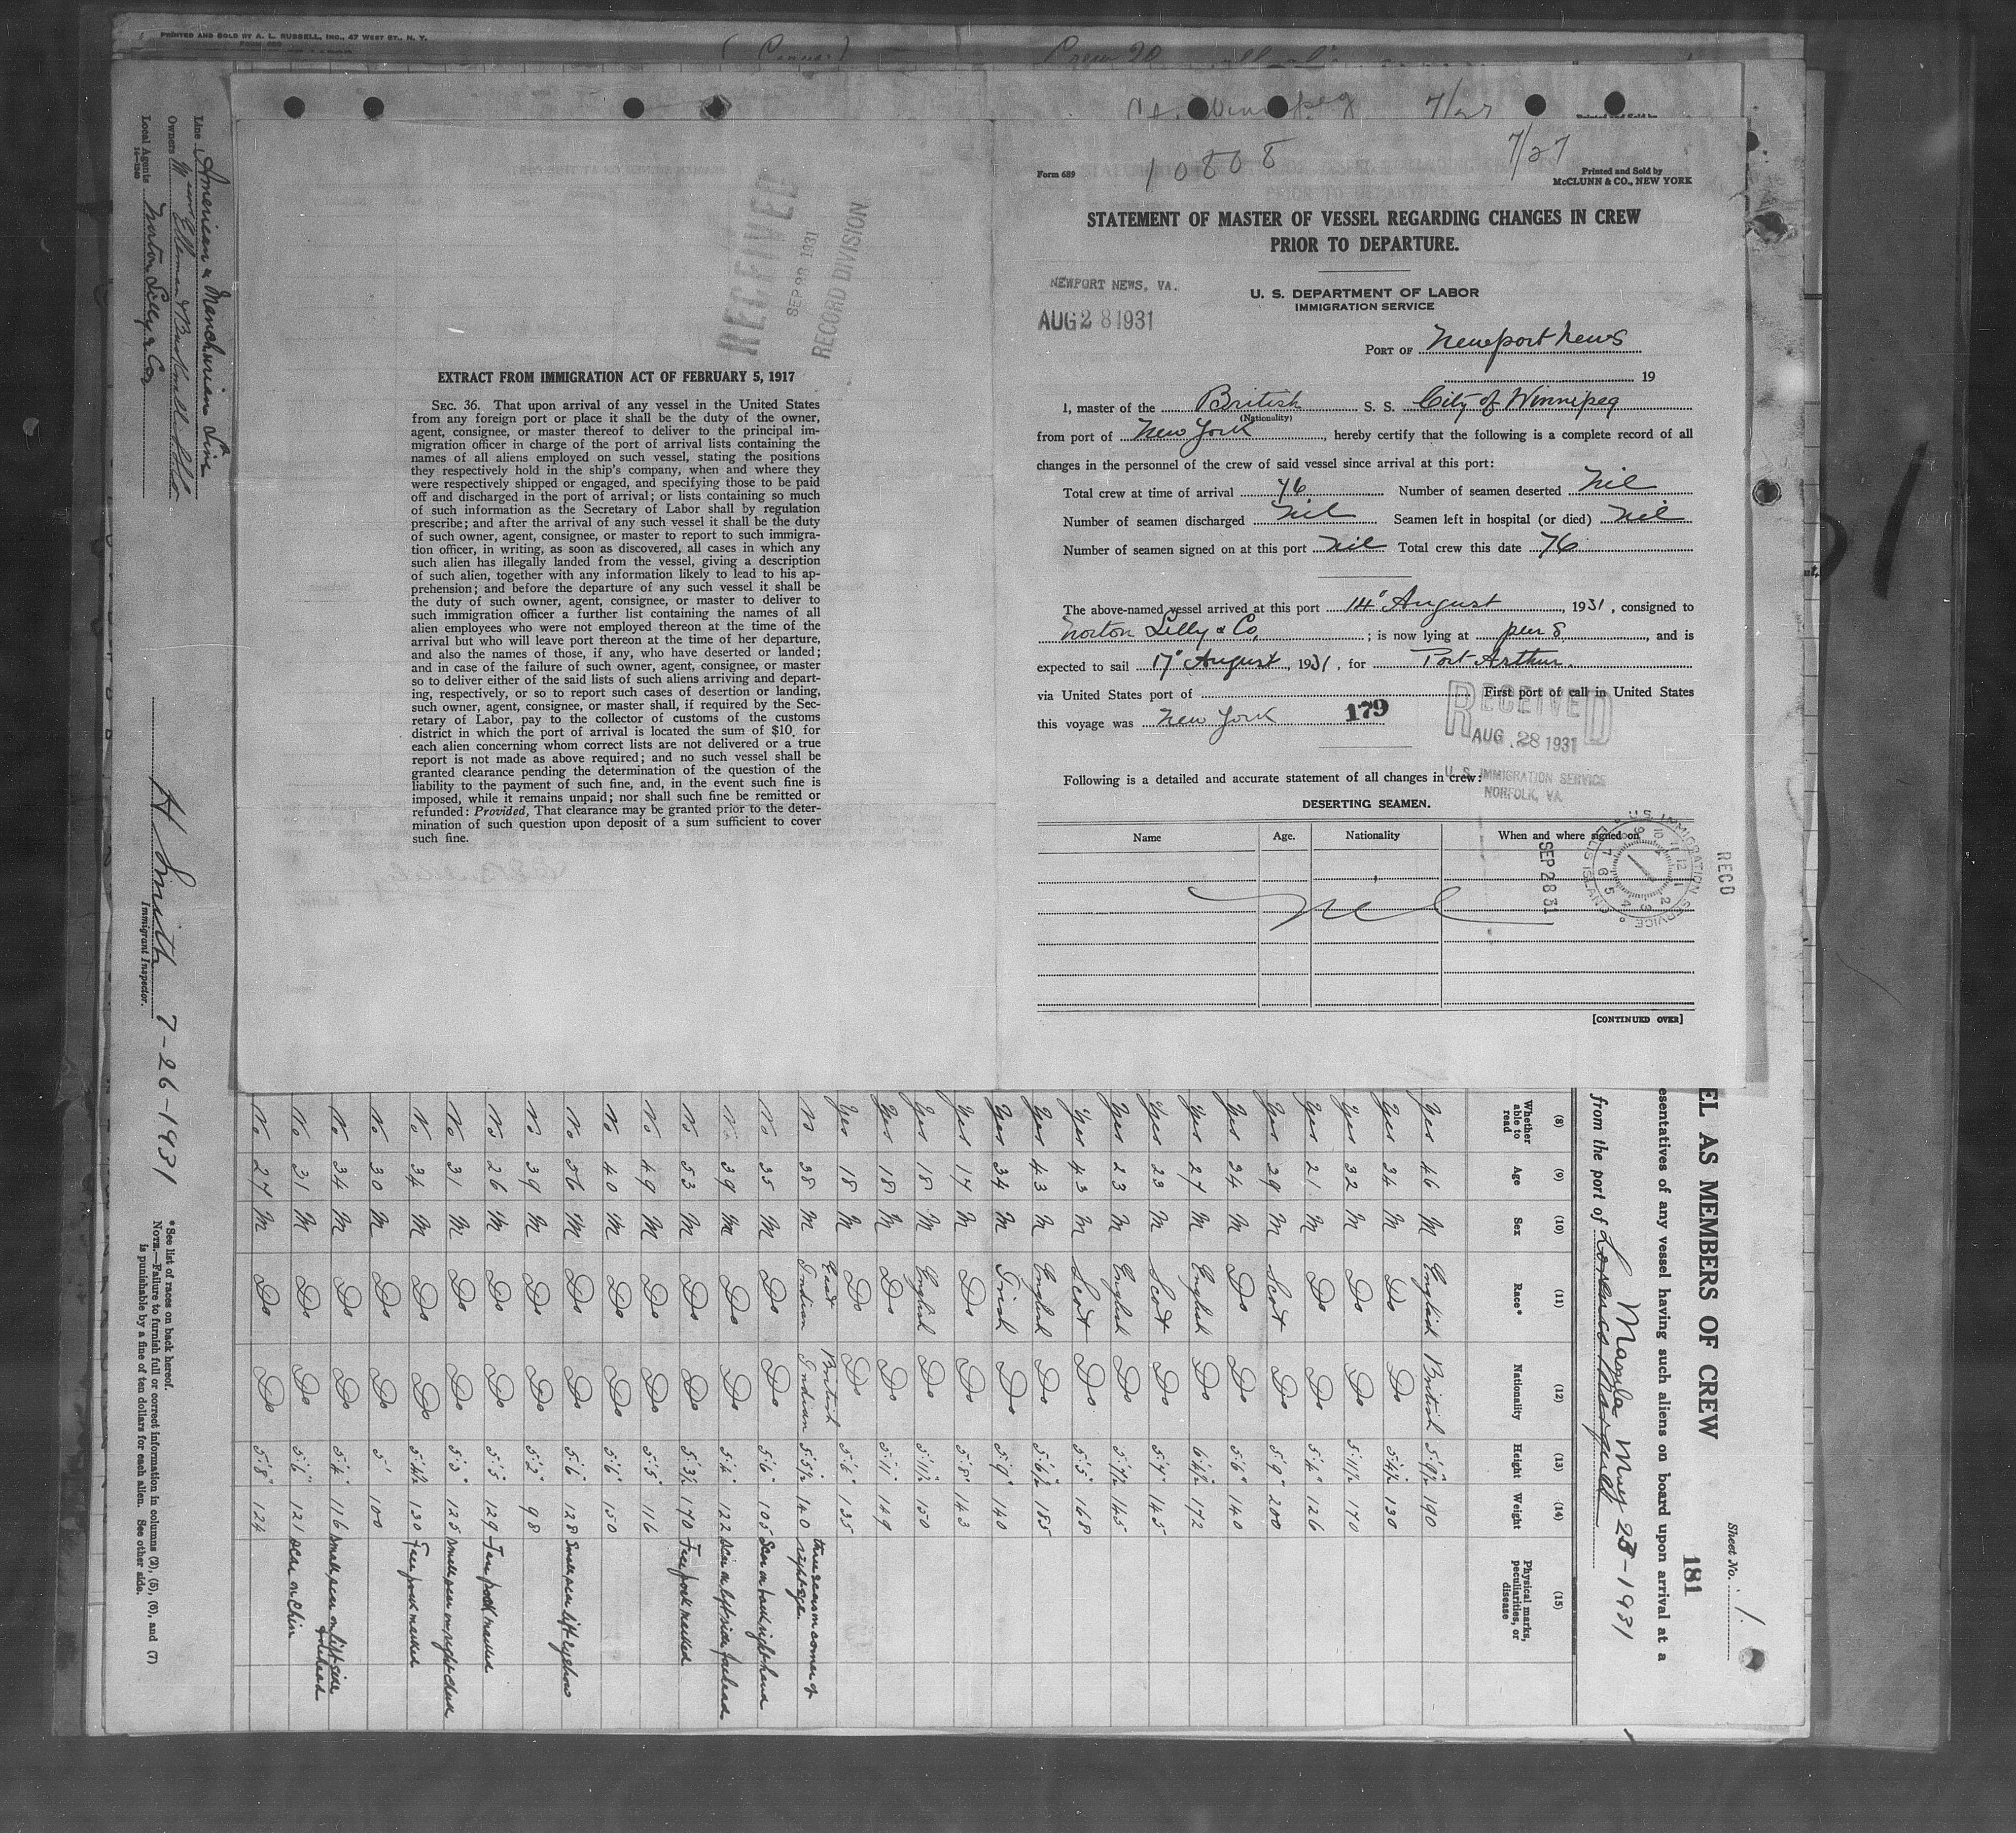 PRINTED AND SOLD BY A. L. RUSSELL, INC., 47 WEST ST., N. Y.
FORM 689
Winnipeg 7/27
10808
7/27
Form 689
Printed and Sold by
McCLUNN & CO., NEW YORK
STATEMENT OF MASTER OF VESSEL REGARDING CHANGES IN CREW
PRIOR TO DEPARTURE.
NEWPORT NEWS, VA.
AUG 28 1931
U. S. DEPARTMENT OF LABOR
IMMIGRATION SERVICE
PORT OF Newport News
19
I, master of the British S. S. City of Winnipeg
(Nationality)
from port of New York, hereby certify that the following is a complete record of all
changes in the personnel of the crew of said vessel since arrival at this port:
Total crew at time of arrival 76 Number of seamen deserted Nil
Number of seamen discharged Nil Seamen left in hospital (or died) Nil
Number of seamen signed on at this port Nil Total crew this date 76
The above-named vessel arrived at this port 14° August, 1931, consigned to
Norton Lilly & Co. ; is now lying at pier 8, and is
expected to sail 17° August, 1931, for Port Arthur.
via United States port of First port of call in United States
this voyage was New York
179
RECEIVED
AUG. 28 1931
U. S. IMMIGRATION SERVICE
NORFOLK, VA.
Following is a detailed and accurate statement of all changes in crew:
DESERTING SEAMEN.
Name Age. Nationality When and where signed on
Nil
SEP 28 31
REC'D
U.S. IMMIGRATION SERVICE
ELLIS ISLAND
[CONTINUED OVER]
RECEIVED
SEP 28 1931
RECORD DIVISION
EXTRACT FROM IMMIGRATION ACT OF FEBRUARY 5, 1917
SEC. 36. That upon arrival of any vessel in the United States
from any foreign port or place it shall be the duty of the owner,
agent, consignee, or master thereof to deliver to the principal im-
migration officer in charge of the port of arrival lists containing the
names of all aliens employed on such vessel, stating the positions
they respectively hold in the ship's company, when and where they
were respectively shipped or engaged, and specifying those to be paid
off and discharged in the port of arrival; or lists containing so much
of such information as the Secretary of Labor shall by regulation
prescribe; and after the arrival of any such vessel it shall be the duty
of such owner, agent, consignee, or master to report to such immigra-
tion officer, in writing, as soon as discovered, all cases in which any
such alien has illegally landed from the vessel, giving a description
of such alien, together with any information likely to lead to his ap-
prehension; and before the departure of any such vessel it shall be
the duty of such owner, agent, consignee, or master to deliver to
such immigration officer a further list containing the names of all
alien employees who were not employed thereon at the time of the
arrival but who will leave port thereon at the time of her departure,
and also the names of those, if any, who have deserted or landed;
and in case of the failure of such owner, agent, consignee, or master
so to deliver either of the said lists of such aliens arriving and depart-
ing, respectively, or so to report such cases of desertion or landing,
such owner, agent, consignee, or master shall, if required by the Sec-
retary of Labor, pay to the collector of customs of the customs
district in which the port of arrival is located the sum of $10 for
each alien concerning whom correct lists are not delivered or a true
report is not made as above required; and no such vessel shall be
granted clearance pending the determination of the question of the
liability to the payment of such fine, and, in the event such fine is
imposed, while it remains unpaid; nor shall such fine be remitted or
refunded: Provided, That clearance may be granted prior to the deter-
mination of such question upon deposit of a sum sufficient to cover
such fine.
Sheet No. 1
181
EL AS MEMBERS OF CREW
esentatives of any vessel having such aliens on board upon arrival at a
from the port of Manila May 23-1931
(8) Whether able to read (9) Age (10) Sex (11) Race* (12) Nationality (13) Height (14) Weight (15) Physical marks, peculiarities, or disease
Yes 46 M English British 5'9½ 190
Yes 34 M Do Do 5'4½ 130
Yes 32 M Do Do 5'11½ 170
Yes 21 M Do Do 5'4" 126
Yes 29 M Scot Do 5'9" 200
Yes 24 M Do Do 5'6" 140
Yes 27 M English Do 6'4½ 172
Yes 23 M Scot Do 5'7" 145
Yes 23 M English Do 5'7½ 145
Yes 43 M Scot Do 5'5" 168
Yes 43 M English Do 5'6½ 185
Yes 34 M Irish Do 5'9" 140
Yes 17 M Do Do 5'8" 143
Yes 18 M English Do 5'11½ 150
Yes 18 M Do Do 5'11" 149
Yes 18 M Do Do 5'6" 135
No 38 M East Indian British Indian 5'5½ 140 three scars on corner of right eye
No 35 M Do Do 5'6" 105 Scar on back right hand
No 39 M Do Do 5'4" 122 Scar on left side forehead
No 53 M Do Do 5'3½ 170 Few pock marked
No 49 M Do Do 5'5" 116
No 40 M Do Do 5'6" 150
No 56 M Do Do 5'6" 128 Small scar left eyebrow
No 39 M Do Do 5'2" 98
No 26 M Do Do 5'5" 129 Few pock marked
No 31 M Do Do 5'3" 125 Small scar on right cheek
No 34 M Do Do 5'4½ 130 Few pock marked
No 30 M Do Do 5' 100
No 34 M Do Do 5'4" 116 Small scar on left side forehead
No 31 M Do Do 5'6" 121 Scar on Chin
No 27 M Do Do 5'8" 124
Line American & Manchurian Line
Owners Ellerman & Bucknall
Local Agents Norton Lilly & Co.
14-1240
H Smith 7-26-1931
Immigrant Inspector.
*See list of races on back hereof.
NOTE.—Failure to furnish full or correct information in columns (3), (5), (6), and (7)
is punishable by a fine of ten dollars for each alien. See other side.